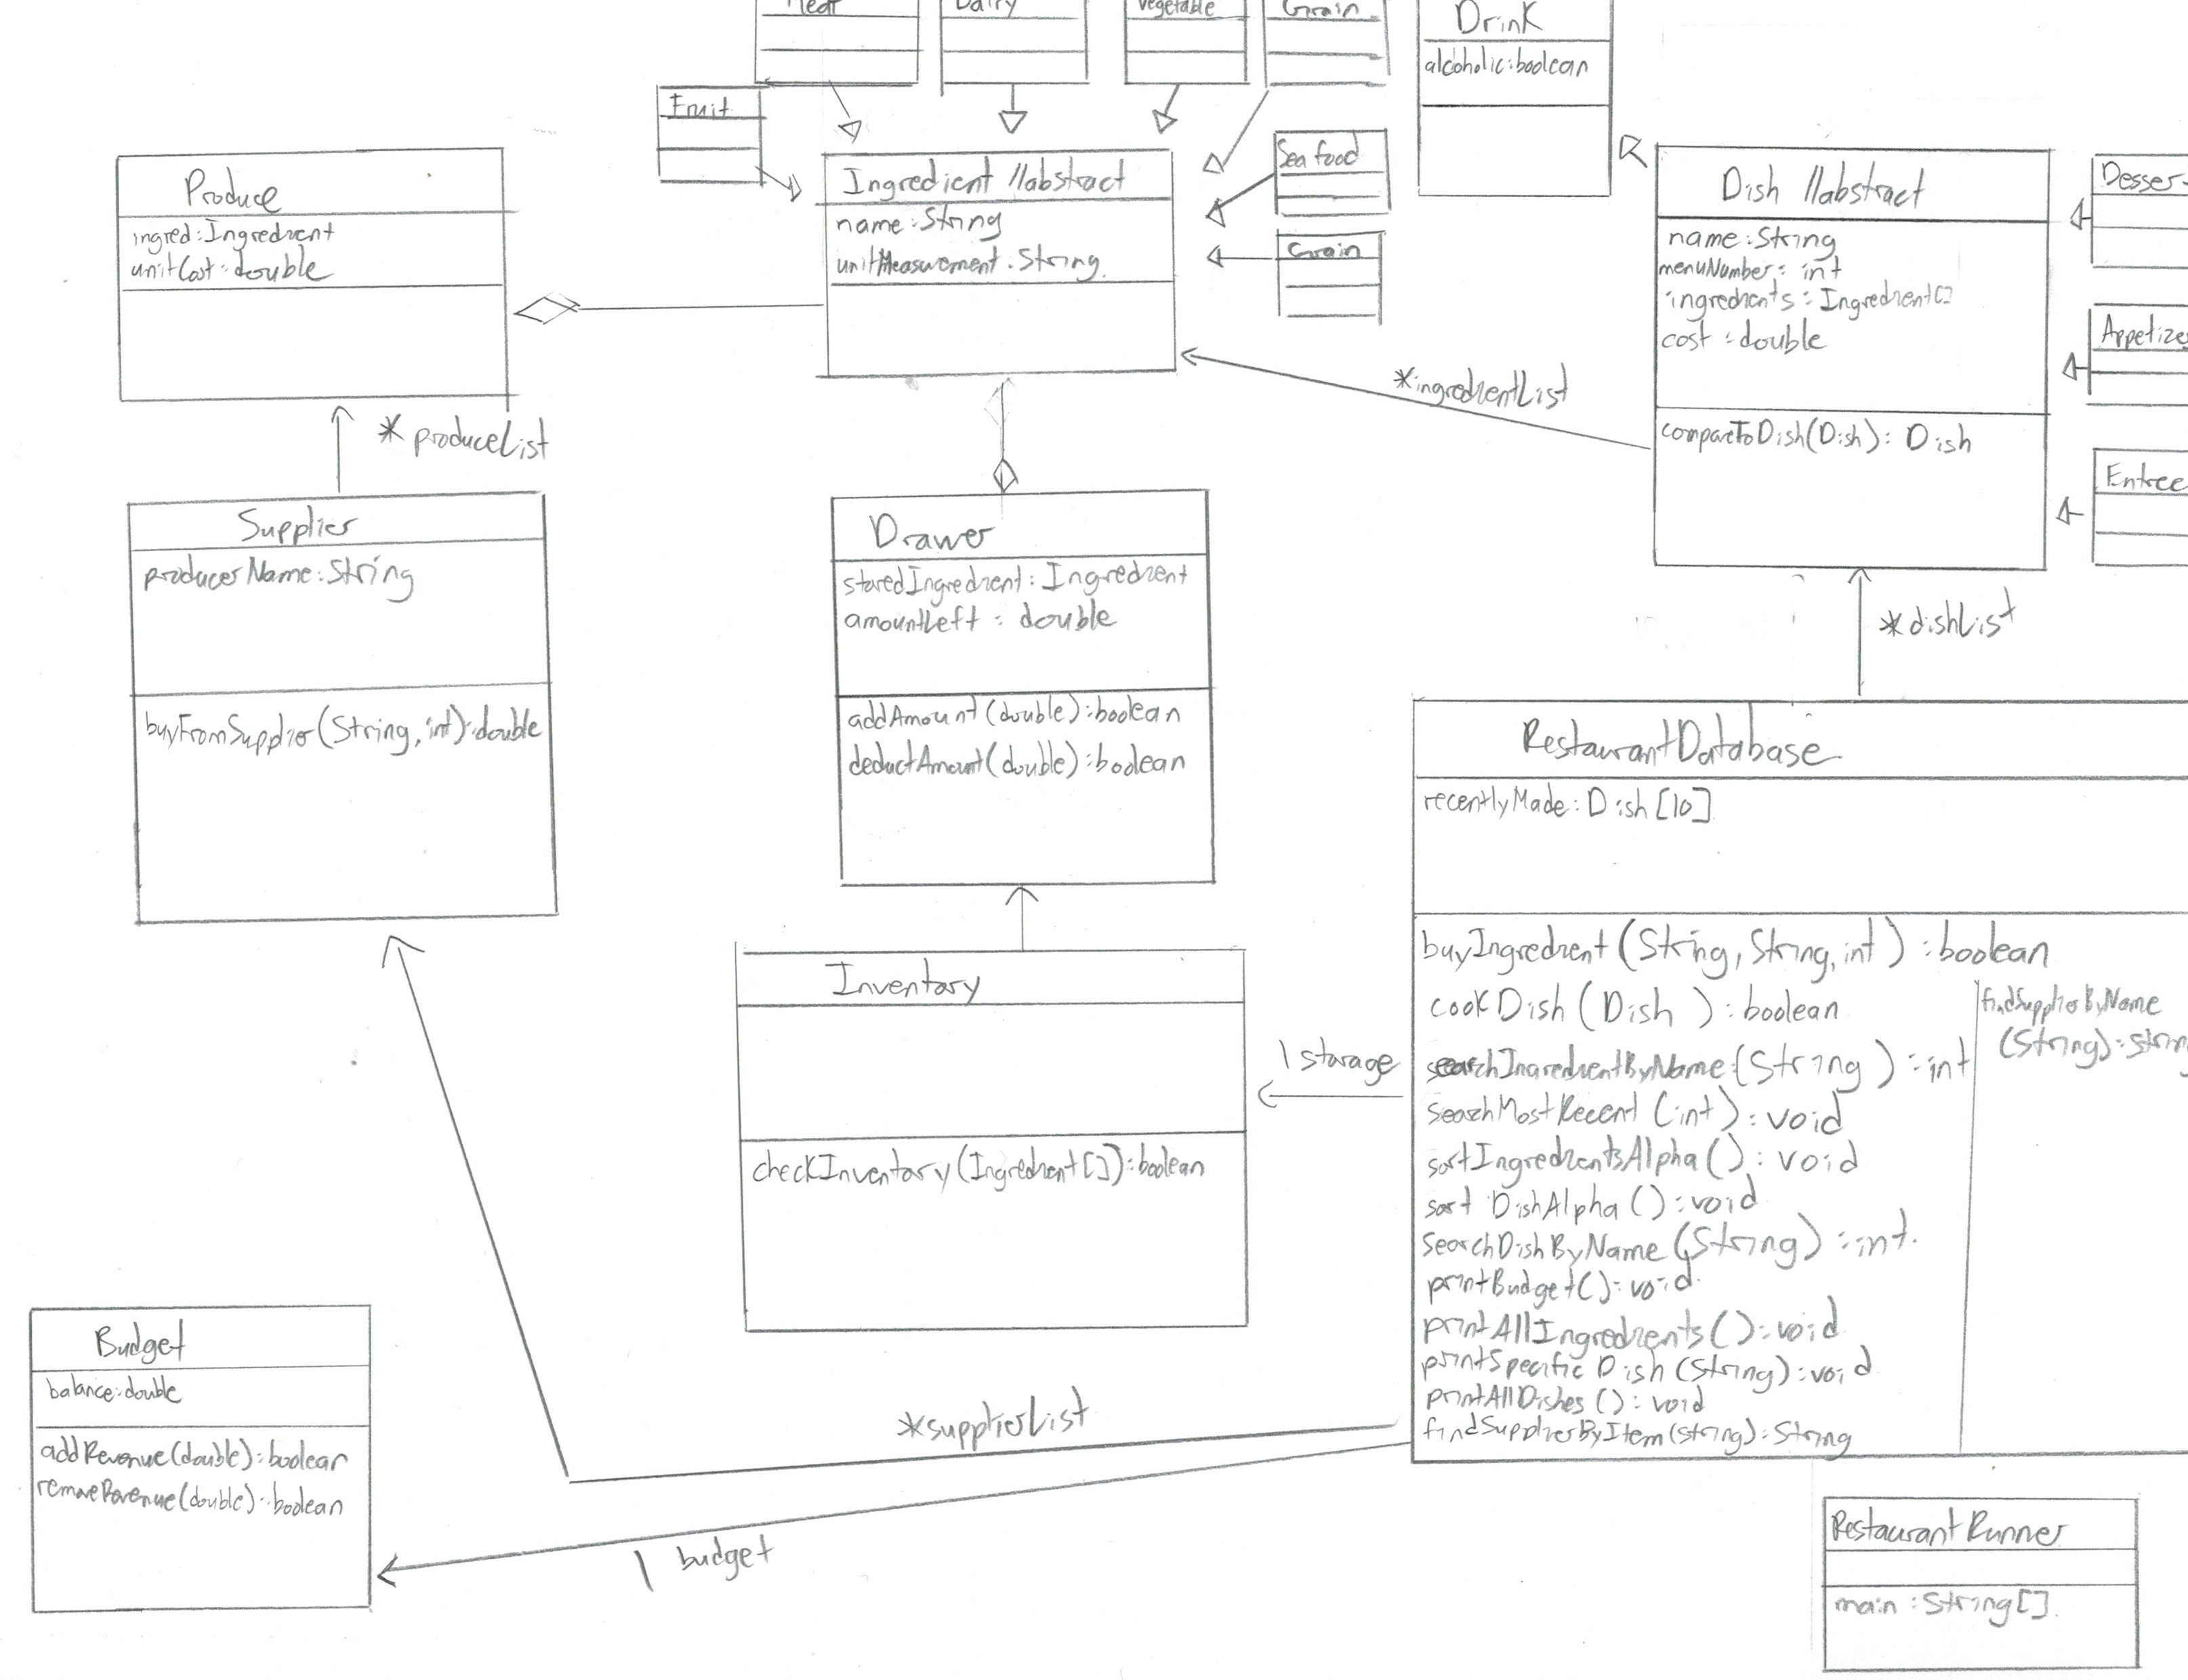 Meat
Dairy
Vegetable
Grain
Drink
alcoholic:boolean
Fruit
Seafood
Grain
Produce
ingred:Ingredient
unitCost:double
Ingredient //abstract
name:String
unitMeasurement:String
Dish //abstract
name:String
menuNumber: int
ingredients:Ingredient[]
cost:double
compareToDish(Dish): Dish
Desser
Appetize
Entree
* produceList
*ingredientList
*dishList
Supplier
producerName:String
buyFromSupplier(String, int):double
Drawer
storedIngredient:Ingredient
amountLeft: double
addAmount(double):boolean
deductAmount(double):boolean
Inventory
checkInventory(Ingredient[]):boolean
1 storage
RestaurantDatabase
recentlyMade:Dish[10]
buyIngredient(String, String, int):boolean
cookDish(Dish):boolean
searchIngredientByName(String):int
searchMostRecent(int):void
sortIngredientsAlpha():void
sort DishAlpha():void
searchDishByName(String):int
printBudget():void
printAllIngredients():void
printSpecificDish(String):void
printAllDishes():void
findSupplierByItem(string):String
findSupplierByName
(String):strin
Budget
balance:double
addRevenue(double):boolean
removeRevenue(double):boolean
*supplierList
1 budget
RestaurantRunner
main:String[]